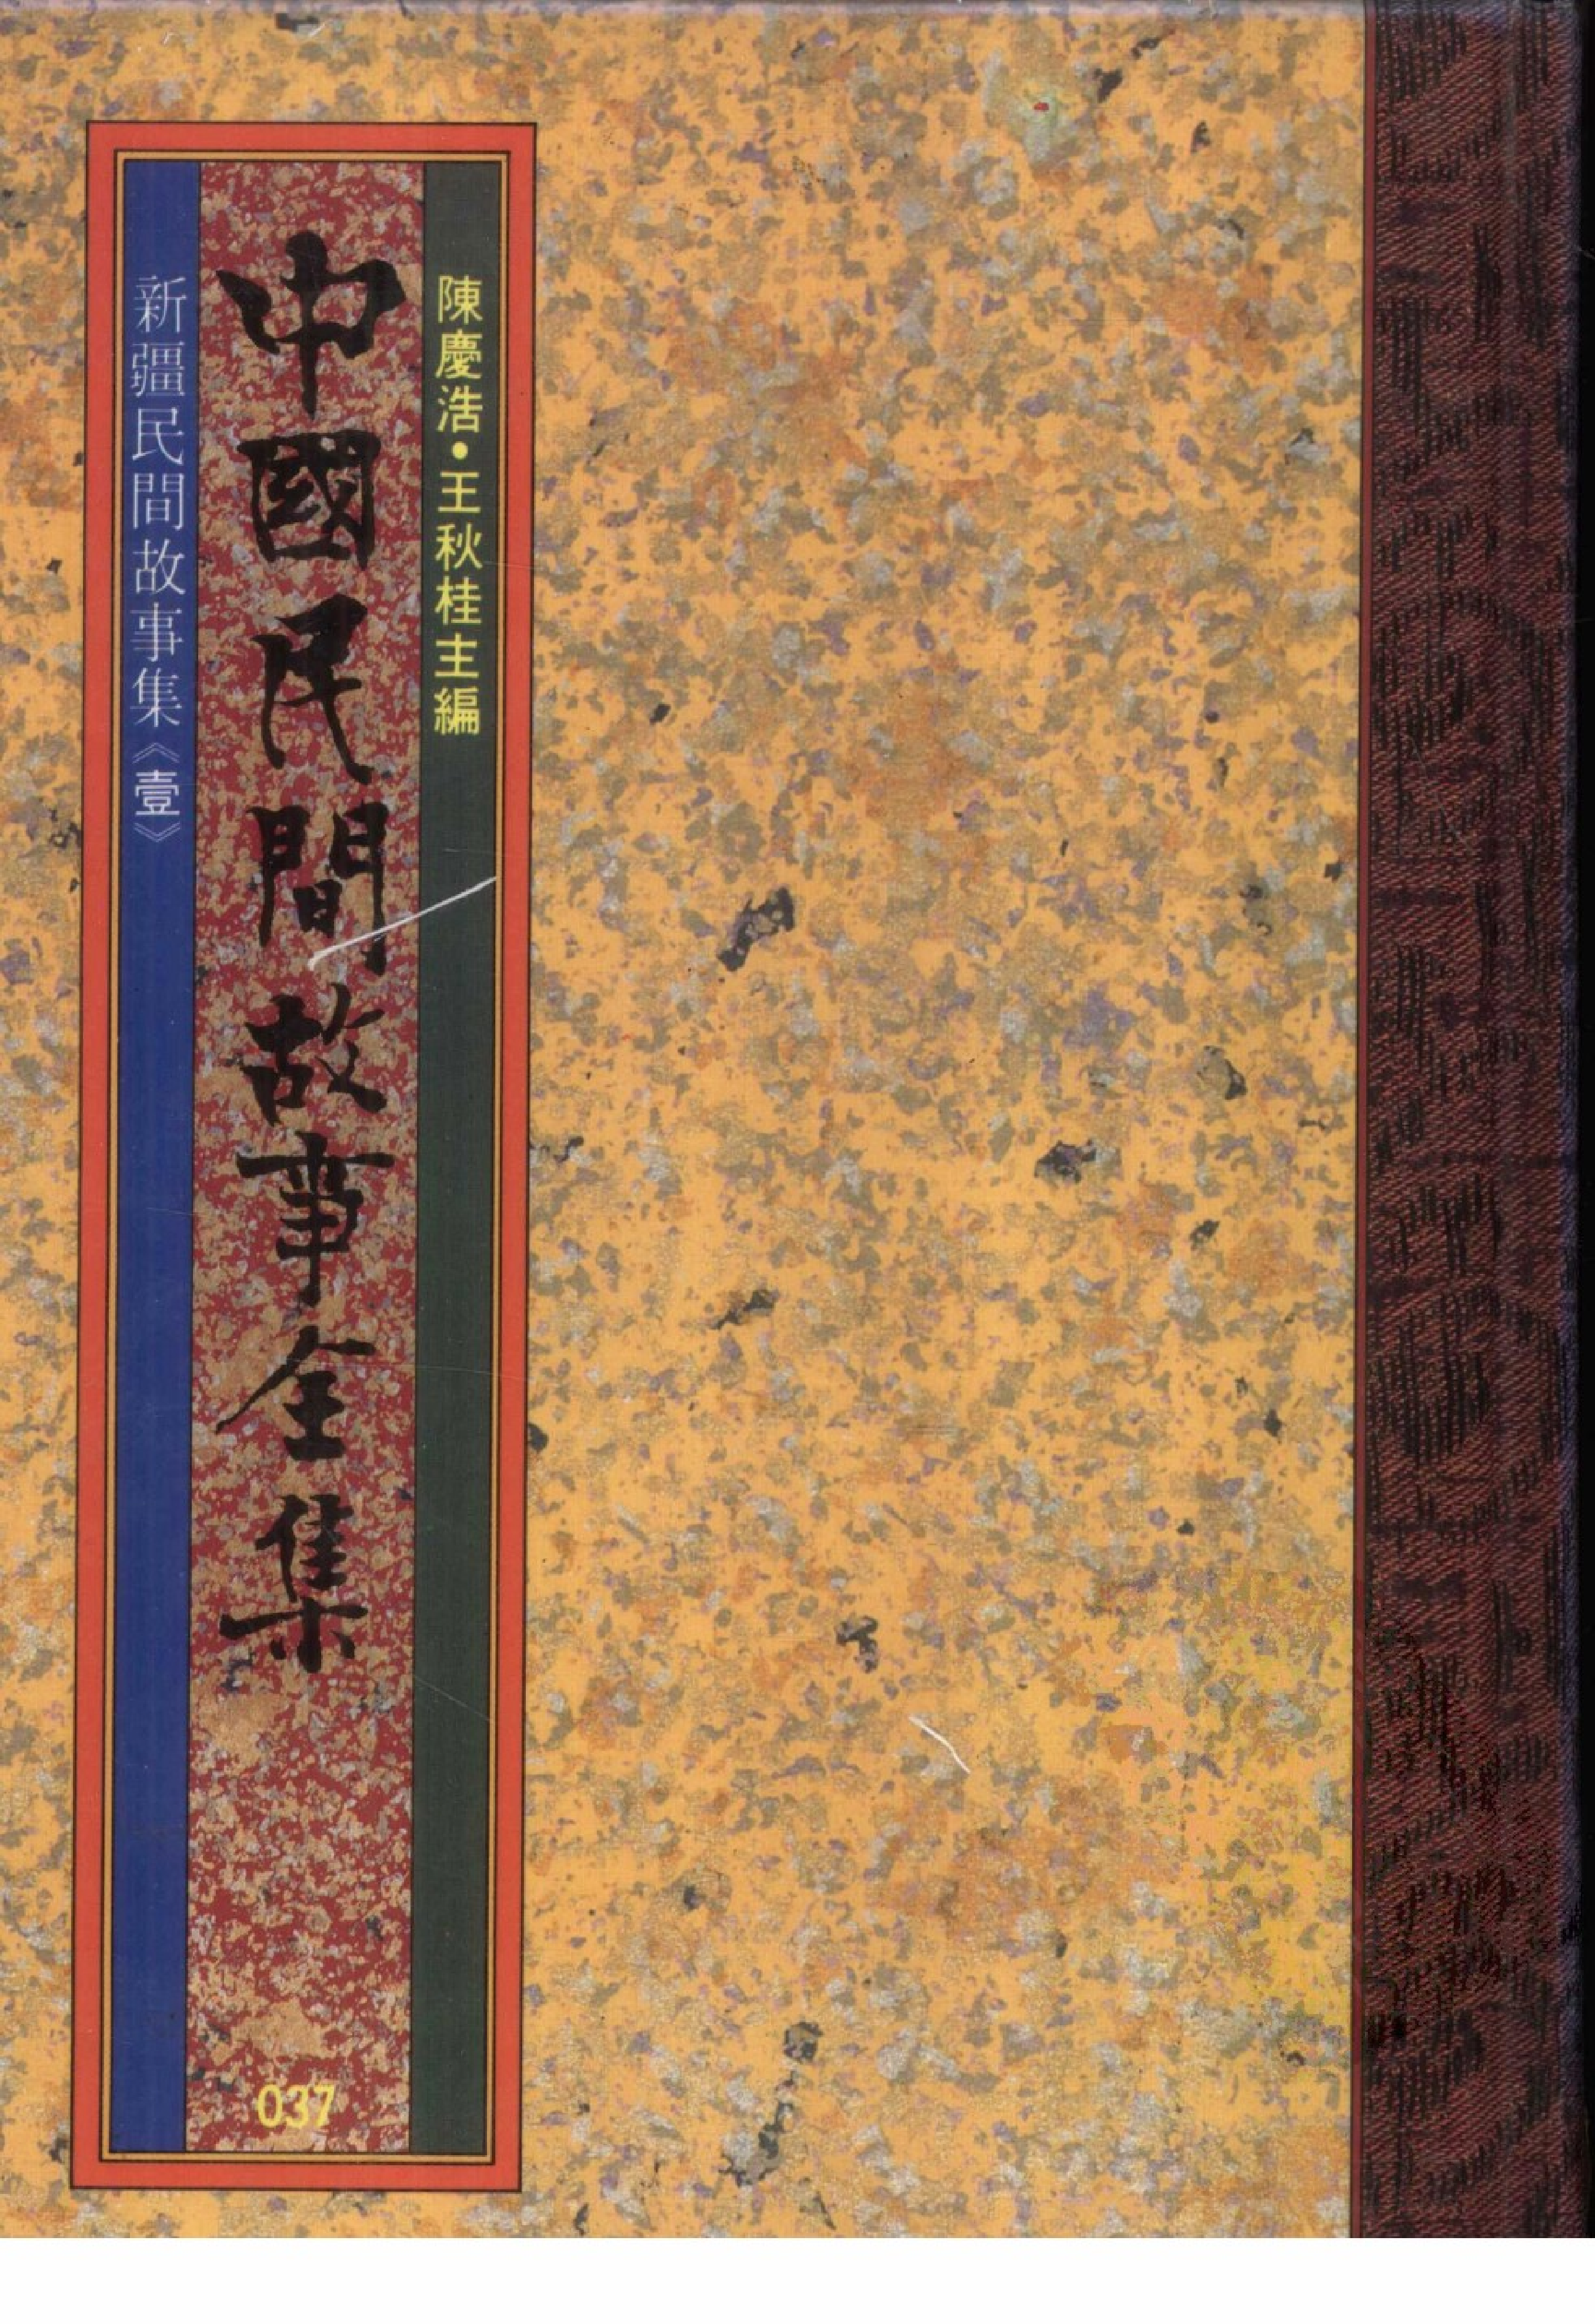 陳慶浩•王秋桂主編
中國民間故事全集
新疆民間故事集《壹》
037